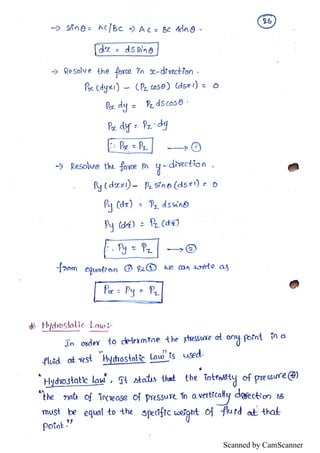 26
→ sinθ = AC/BC → AC = BC sinθ.
dx = ds sinθ
→ Resolve the force in x-direction.
Px (dy×1) - (Pz cosθ) (ds×1) = 0
Px dy = Pz ds cosθ.
Px dy = Pz . dy
∴ Px = Pz → ①
→ Resolve the force in y-direction.
Py (dx×1) - Pz sinθ (ds×1) = 0
Py (dx) = Pz ds sinθ
Py (dx) = Pz (dx)
∴ Py = Pz → ②
from equation ① & ② we can write as
Px = Py = Pz
* Hydrostatic Law:-
In order to determine the pressure at any point in a
fluid at rest "Hydrostatic Law" is used.
"Hydrostatic law", It states that the intensity of pressure (P)
"the rate of increase of pressure in a vertically direction is
must be equal to the specific weight of fluid at that
point."
Scanned by CamScanner